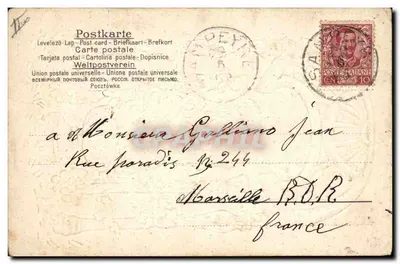 Postkarte
Levelező-Lap - Post card - Briefkaart - Brefkort
Carte postale
Tarjeta postal - Cartolina postale - Dopisnice
Weltpostverein
Union postale universelle - Unione postale universale
ВСЕМІРНЫЙ ПОЧТОВЫЙ СОЮЗЪ. РОССІЯ. ОТКРЫТОЕ ПИСЬМО.
Pocztówka
SAMPEYRE
10
a Monsieur Gollimo Jean
Rue paradis No 244
Marseille B.D.R
france